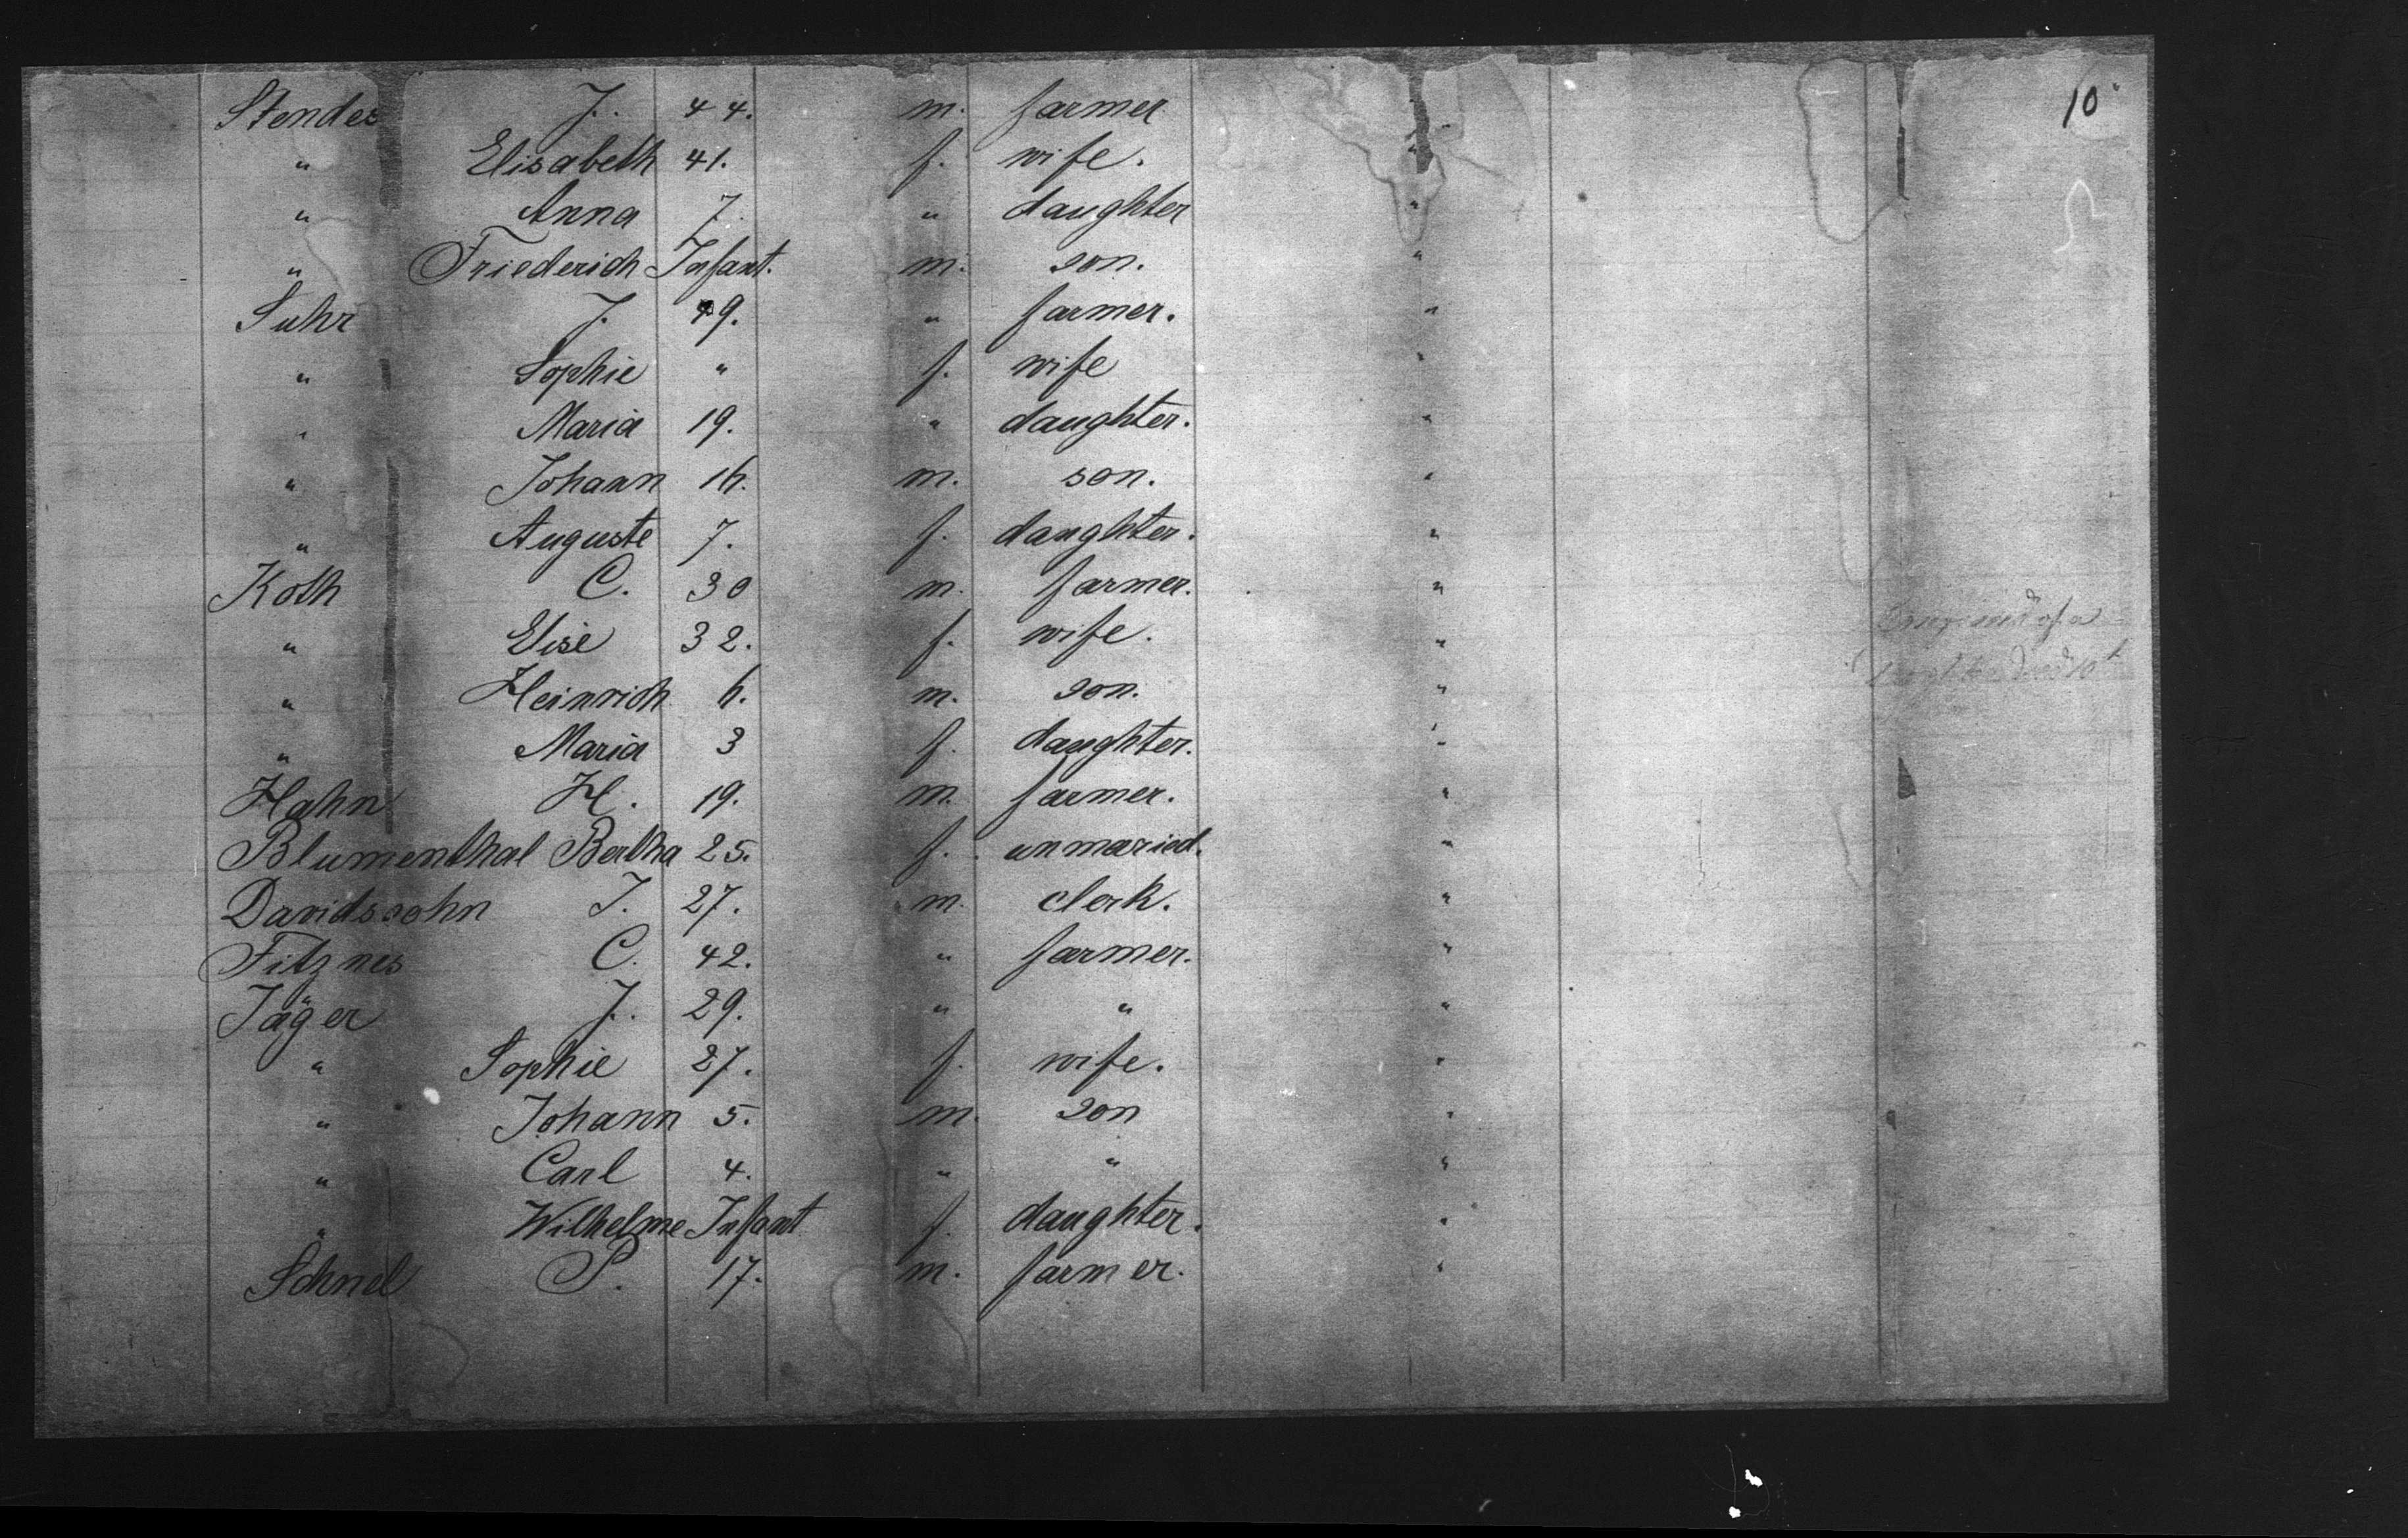 10
Stendes J. 44. m. farmer
" Elisabeth 41. f. wife. "
" Anna 7. " daughter "
" Friederich Infant. m. son. "
Suhr J. 49. " farmer. "
" Sophie " f. wife "
" Maria 19. " daughter. "
" Johann 16. m. son. "
" Auguste 7. f. daughter. "
Koth C. 30 m. farmer. "
" Elise 32. f. wife. "
" Heinrich 6. m. son. "
" Maria 3 f. daughter. "
Hahn H. 19. m. farmer. "
Blumenthal Bertha 25. f. unmaried. "
Davidssohn J. 27. m. clerk. "
Fitznes C. 42. " farmer. "
Jäger J. 29. " " "
" Sophie 27. f. wife. "
" Johann 5. m. son "
" Carl 4. " " "
" Wilhelme Infant f. daughter. "
Schnel P. 17. m. farmer. "